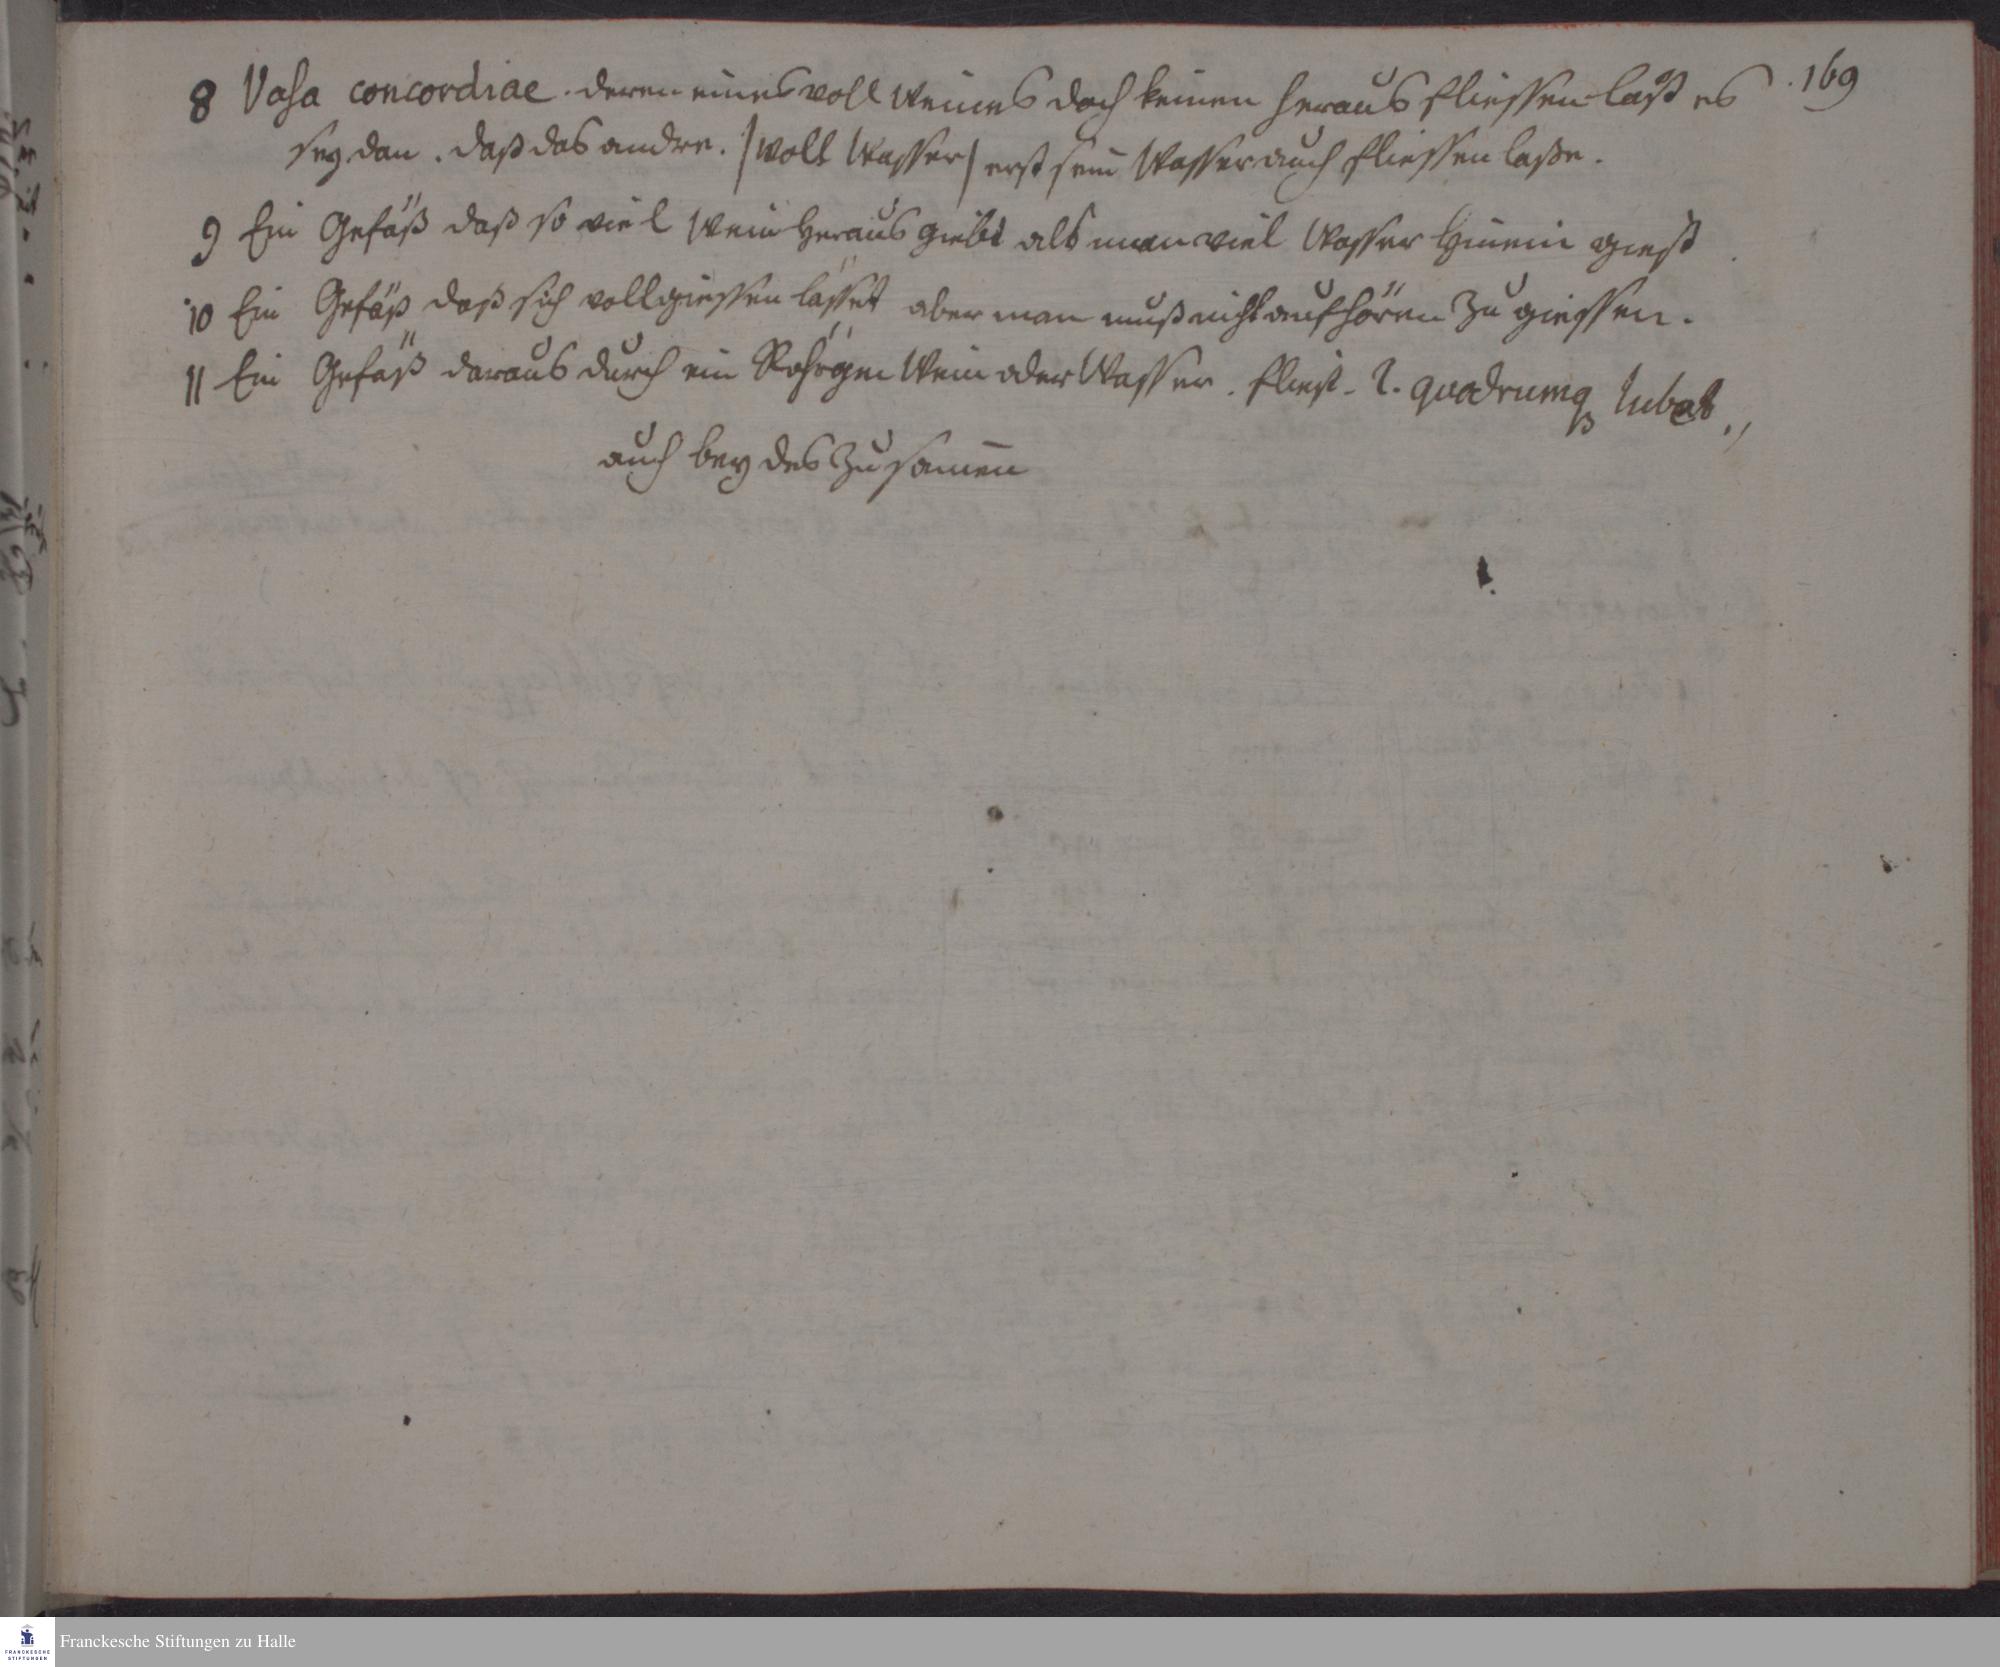 169
8 Vasa concordiae. deren eines voll Weines doch keinen heraus fliessen laßt es
sey dan. daß das andre. /voll Wasser/ erst sein Wasser auch fliessen laße.
9 Ein Gefäß daß so viel Wein heraus giebt als man viel Wasser hinein giest
10 Ein Gefäß daß sich vollgiessen lässet aber man muß nicht aufhören zu giessen.
11 Ein Gefäß daraus durch ein Rohrgen Wein oder Wasser. fliest. lubet,,
auch beydes zusamen
Franckesche Stiftungen zu Halle
FRANCKESCHE
STIFTUNGEN